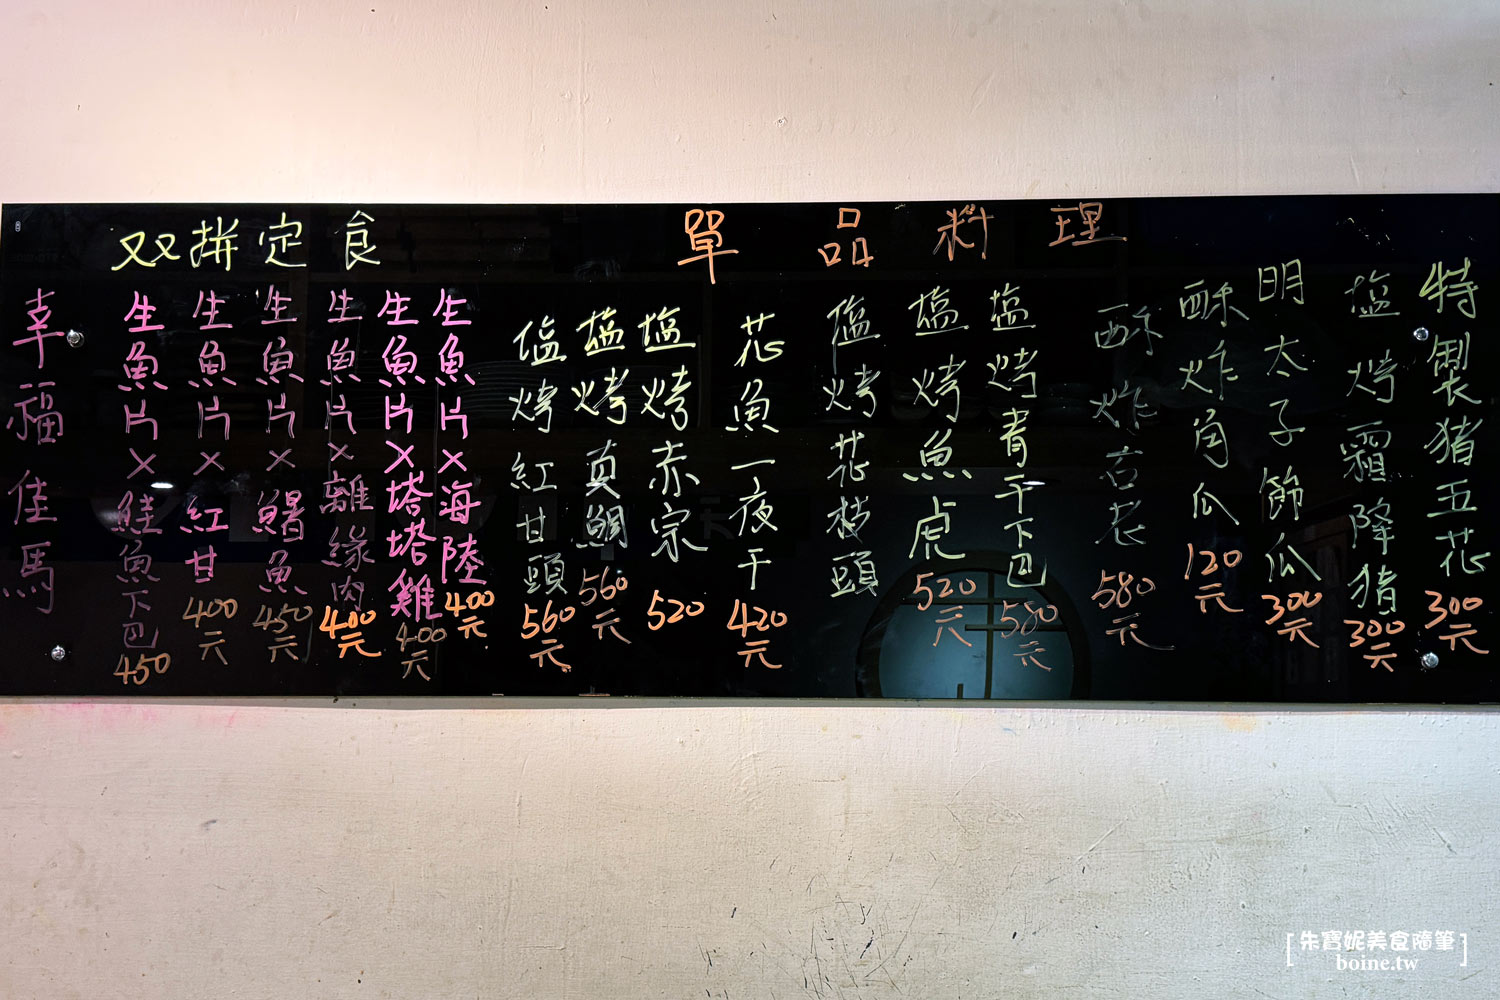 單品料理
特製猪五花300元
塩烤霜降猪300元
明太子節瓜300元
酥炸角瓜120元
酥炸石老580元
塩烤青干下巴580元
塩烤魚虎520元
塩烤花枝頭
花魚一夜干420元
塩烤赤宗520
塩烤真鯛560元
塩烤紅甘頭560元
双拼定食
生魚片×海陸400元
生魚片×塔塔雞400元
生魚片×離緣肉400元
生魚片×鰻魚450元
生魚片×紅甘400元
生魚片×鮭魚下巴450
幸福佳馬
[朱寶妮美食隨筆]
boine.tw